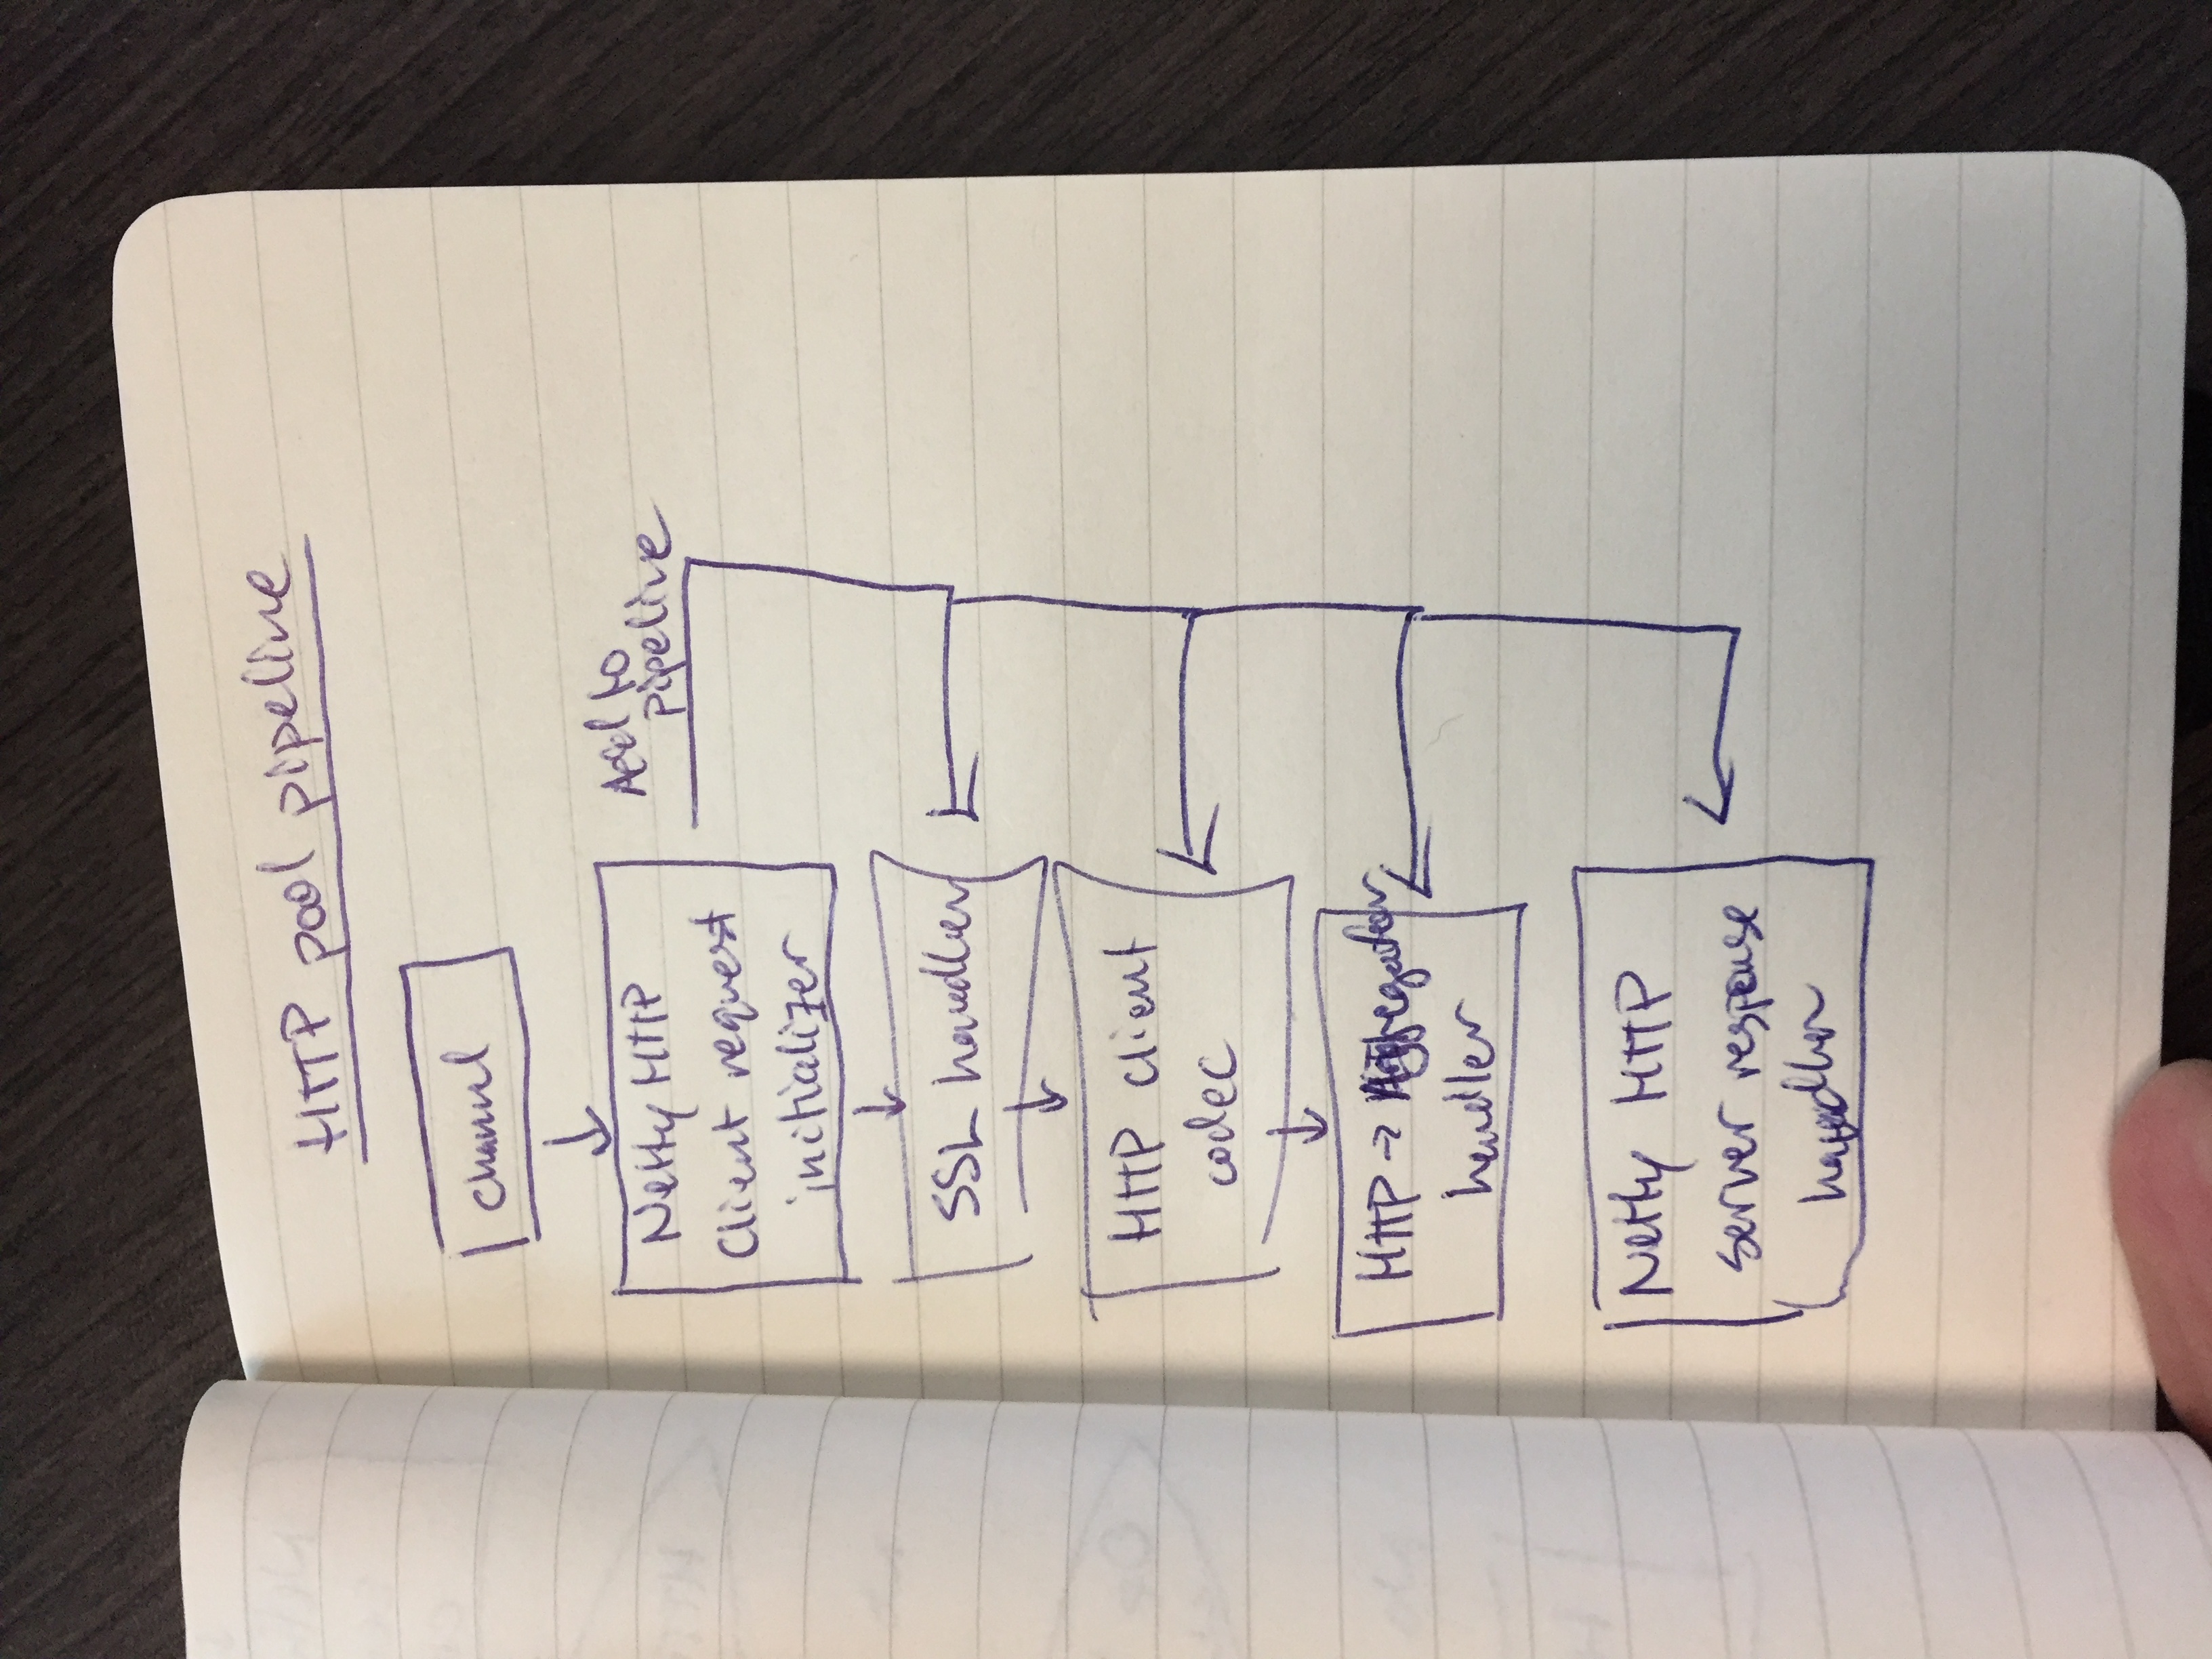 HTTP pool pipeline
Channel
Netty HTTP
Client request
initializer
Add to
pipeline
SSL handler
HTTP client
codec
HTTP → Aggregator
handler
Netty HTTP
server response
handler